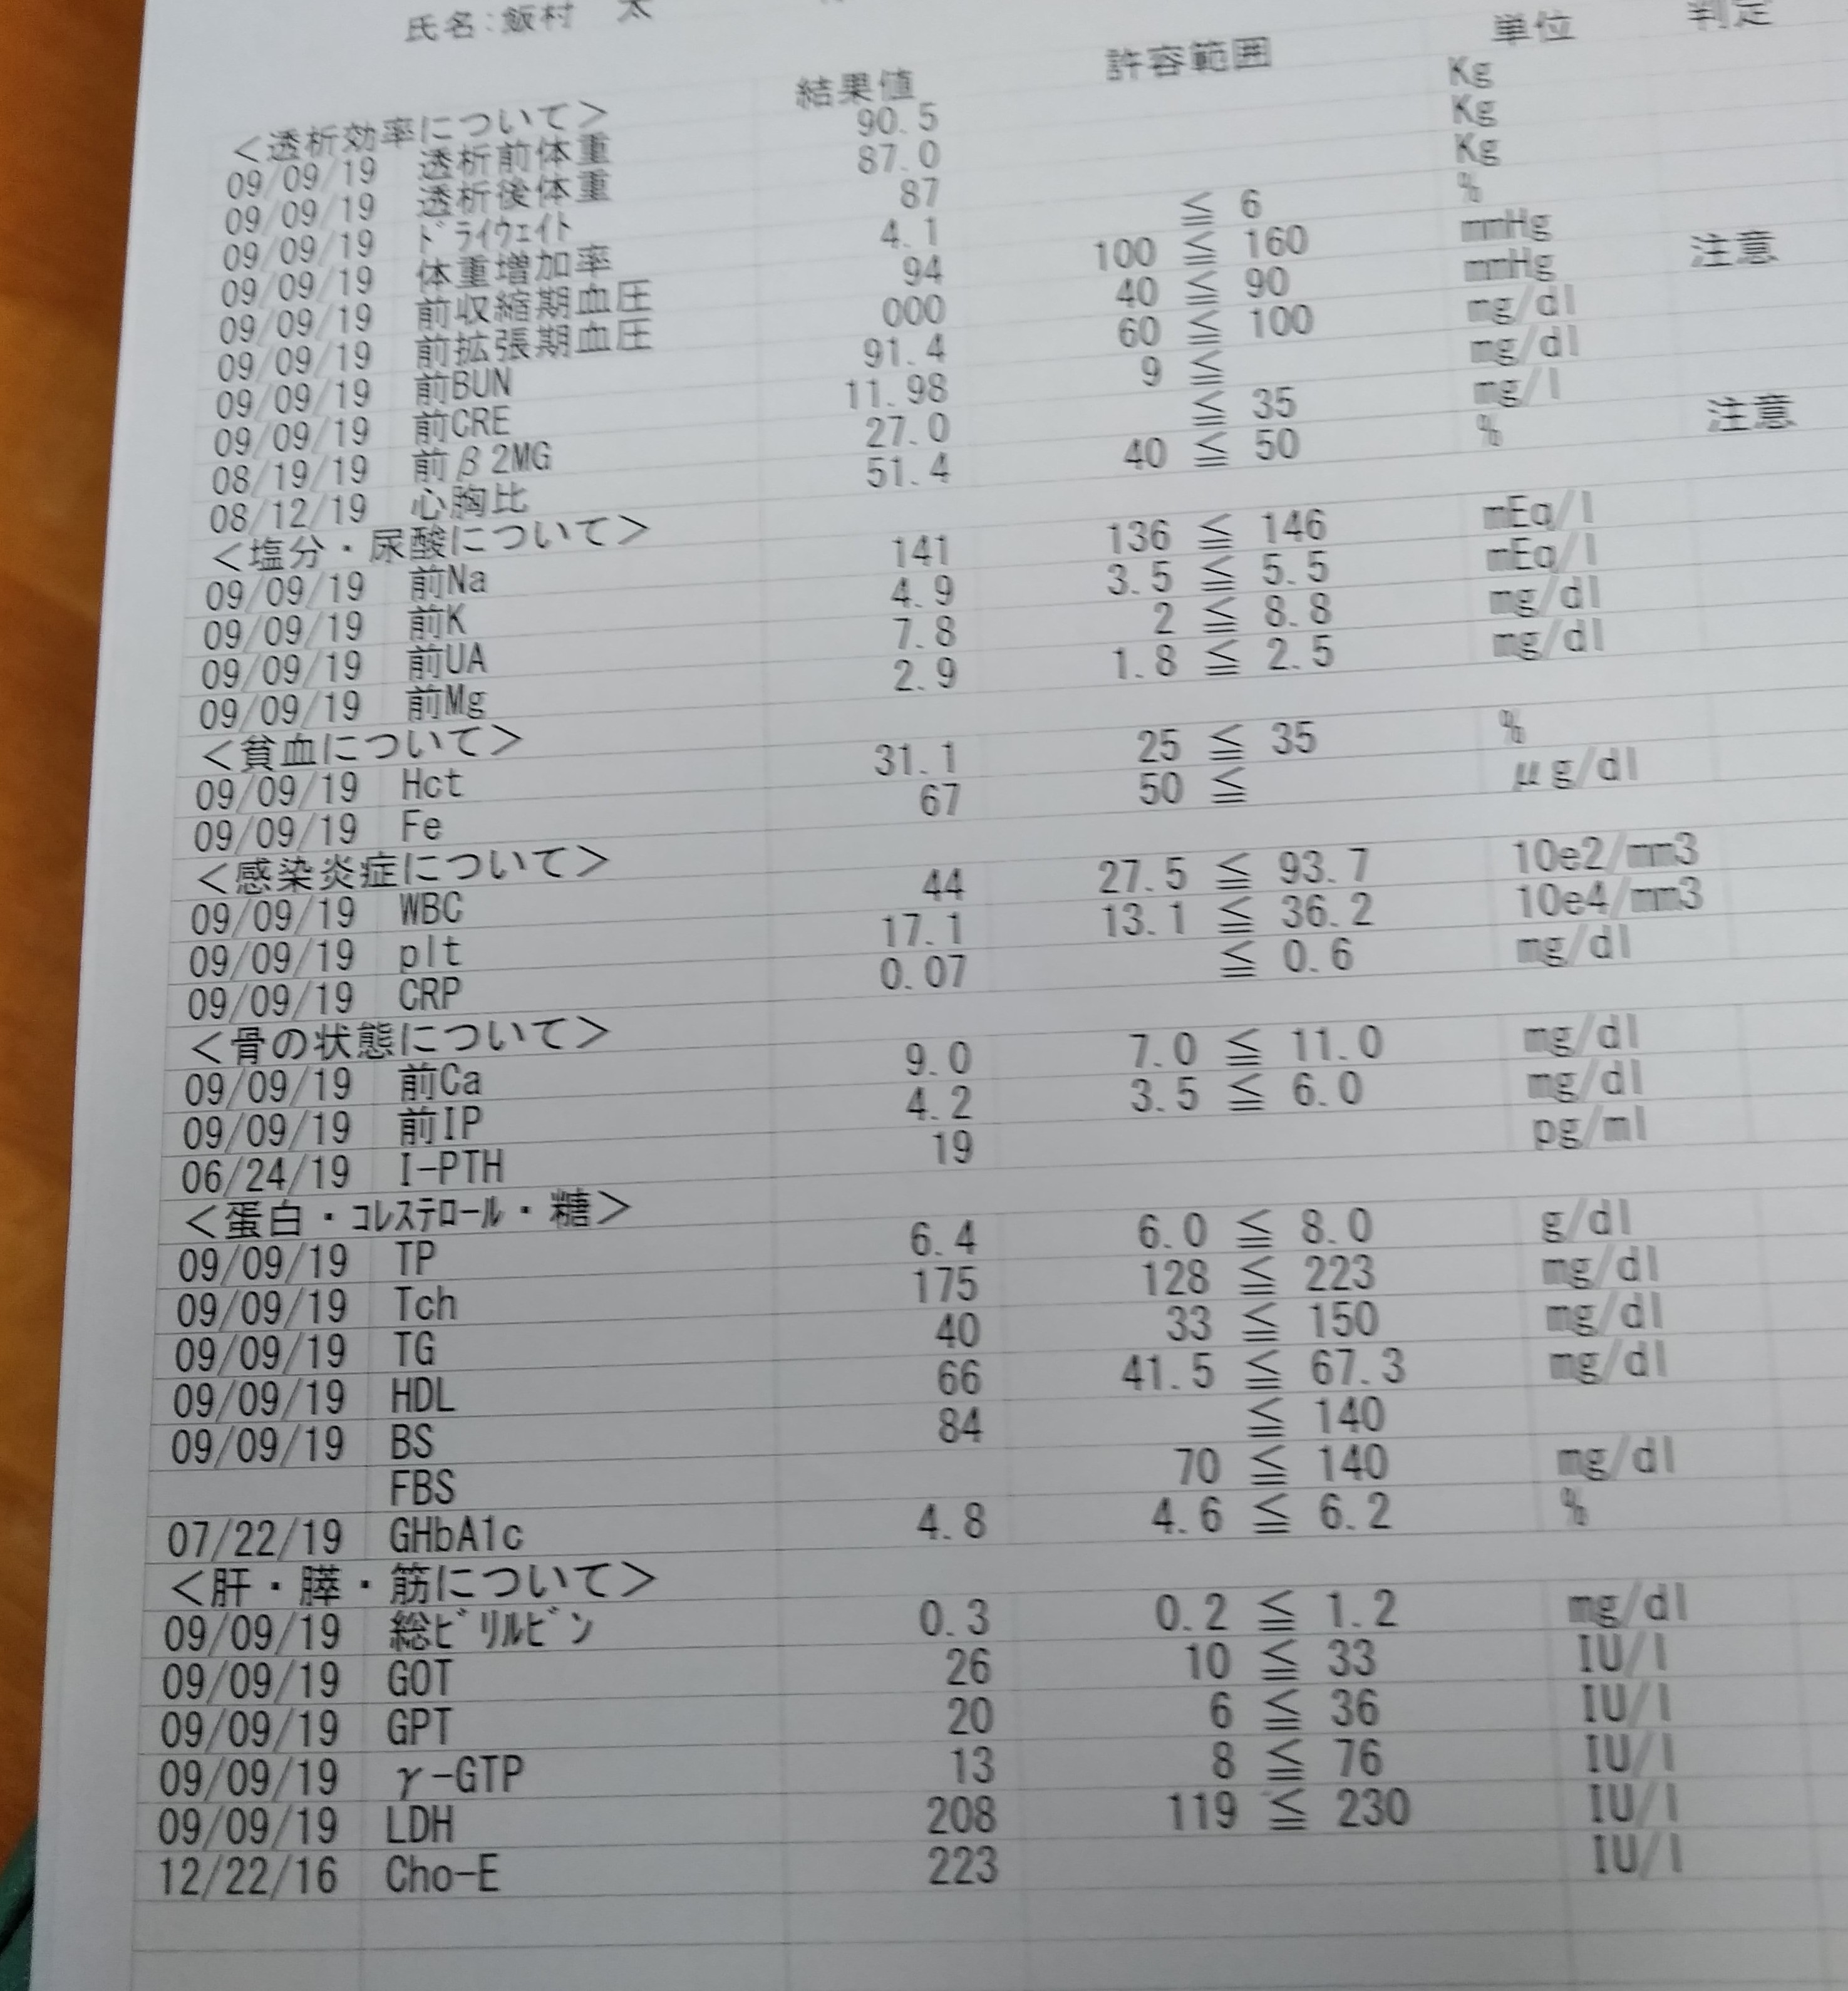 氏名:飯村　太
結果値 許容範囲 単位 判定
＜透析効率について＞
09/09/19 透析前体重 90.5 Kg
09/09/19 透析後体重 87.0 Kg
09/09/19 ﾄﾞﾗｲｳｪｲﾄ 87 Kg
09/09/19 体重増加率 4.1 ≦ 6 %
09/09/19 前収縮期血圧 94 100 ≦ 160 mmHg 注意
09/09/19 前拡張期血圧 000 40 ≦ 90 mmHg
09/09/19 前BUN 91.4 60 ≦ 100 mg/dl
09/09/19 前CRE 11.98 9 ≦ mg/dl
08/19/19 前β2MG 27.0 ≦ 35 mg/l
08/12/19 心胸比 51.4 40 ≦ 50 % 注意
＜塩分・尿酸について＞
09/09/19 前Na 141 136 ≦ 146 mEq/l
09/09/19 前K 4.9 3.5 ≦ 5.5 mEq/l
09/09/19 前UA 7.8 2 ≦ 8.8 mg/dl
09/09/19 前Mg 2.9 1.8 ≦ 2.5 mg/dl
＜貧血について＞
09/09/19 Hct 31.1 25 ≦ 35 %
09/09/19 Fe 67 50 ≦ μg/dl
＜感染炎症について＞
09/09/19 WBC 44 27.5 ≦ 93.7 10e2/mm3
09/09/19 plt 17.1 13.1 ≦ 36.2 10e4/mm3
09/09/19 CRP 0.07 ≦ 0.6 mg/dl
＜骨の状態について＞
09/09/19 前Ca 9.0 7.0 ≦ 11.0 mg/dl
09/09/19 前IP 4.2 3.5 ≦ 6.0 mg/dl
06/24/19 I-PTH 19 pg/ml
＜蛋白・ｺﾚｽﾃﾛｰﾙ・糖＞
09/09/19 TP 6.4 6.0 ≦ 8.0 g/dl
09/09/19 Tch 175 128 ≦ 223 mg/dl
09/09/19 TG 40 33 ≦ 150 mg/dl
09/09/19 HDL 66 41.5 ≦ 67.3 mg/dl
09/09/19 BS 84 ≦ 140
FBS 70 ≦ 140 mg/dl
07/22/19 GHbA1c 4.8 4.6 ≦ 6.2 %
＜肝・膵・筋について＞
09/09/19 総ﾋﾞﾘﾙﾋﾞﾝ 0.3 0.2 ≦ 1.2 mg/dl
09/09/19 GOT 26 10 ≦ 33 IU/l
09/09/19 GPT 20 6 ≦ 36 IU/l
09/09/19 γ-GTP 13 8 ≦ 76 IU/l
09/09/19 LDH 208 119 ≦ 230 IU/l
12/22/16 Cho-E 223 IU/l